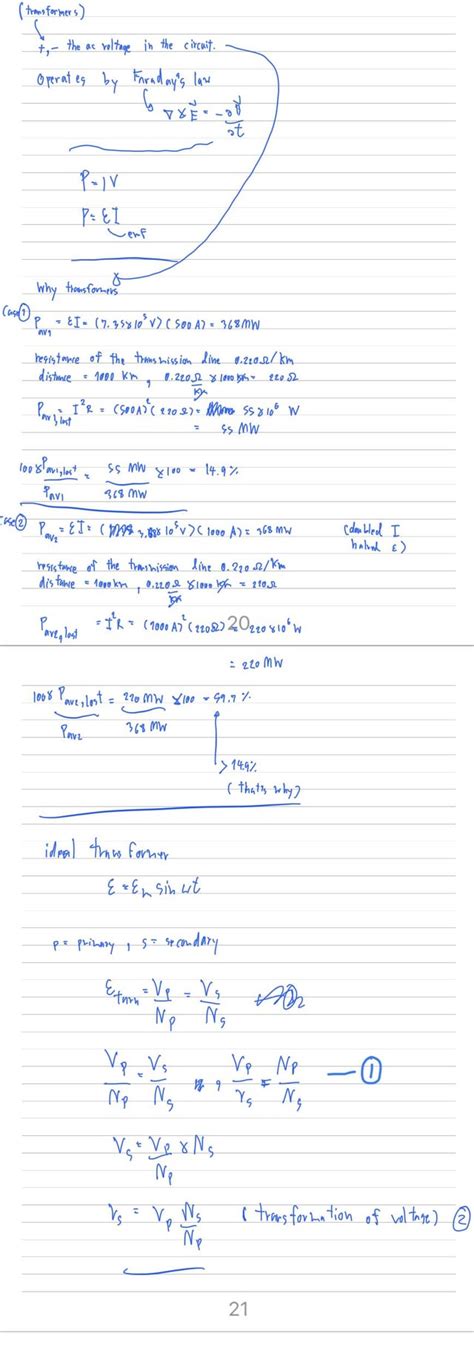 (transformers)
+,- the ac voltage in the circuit.
Operates by Faraday's law
∇×E⃗ = -∂B⃗/∂t
P=IV
P=ƐI
emf
Why transformers
Case ①
P_av1 = ƐI = (7.35×10⁵ V)(500 A) = 368 MW
resistance of the transmission line 0.220 Ω/km
distance = 1000 km, 0.220 Ω/km × 1000 km = 220 Ω
P_av1,lost = I²R = (500A)²(220Ω) = 55×10⁶ W
= 55 MW
100×P_av1,lost/P_av1 = 55 MW/368 MW ×100 = 14.9%
Case ② P_av2 = ƐI = (3.68×10⁵V)(1000 A) = 368 MW (doubled I
halved Ɛ)
resistance of the transmission line 0.220 Ω/km
distance = 1000 km, 0.220 Ω/km × 1000 km = 220Ω
P_ave2,lost = I²R = (1000A)²(220Ω) = 220×10⁶ W
20
= 220 MW
100× P_ave2,lost/P_av2 = 220 MW/368 MW ×100 = 59.7%
> 14.9%
(thats why)
ideal transformer
Ɛ = Ɛₘ sin ωt
p = primary, s = secondary
Ɛ_turn = V_p/N_p = V_s/N_s
V_p/N_p = V_s/N_s , V_p/V_s = N_p/N_s — ①
V_s = V_p/N_p × N_s
V_s = V_p N_s/N_p (transformation of voltage) ②
21